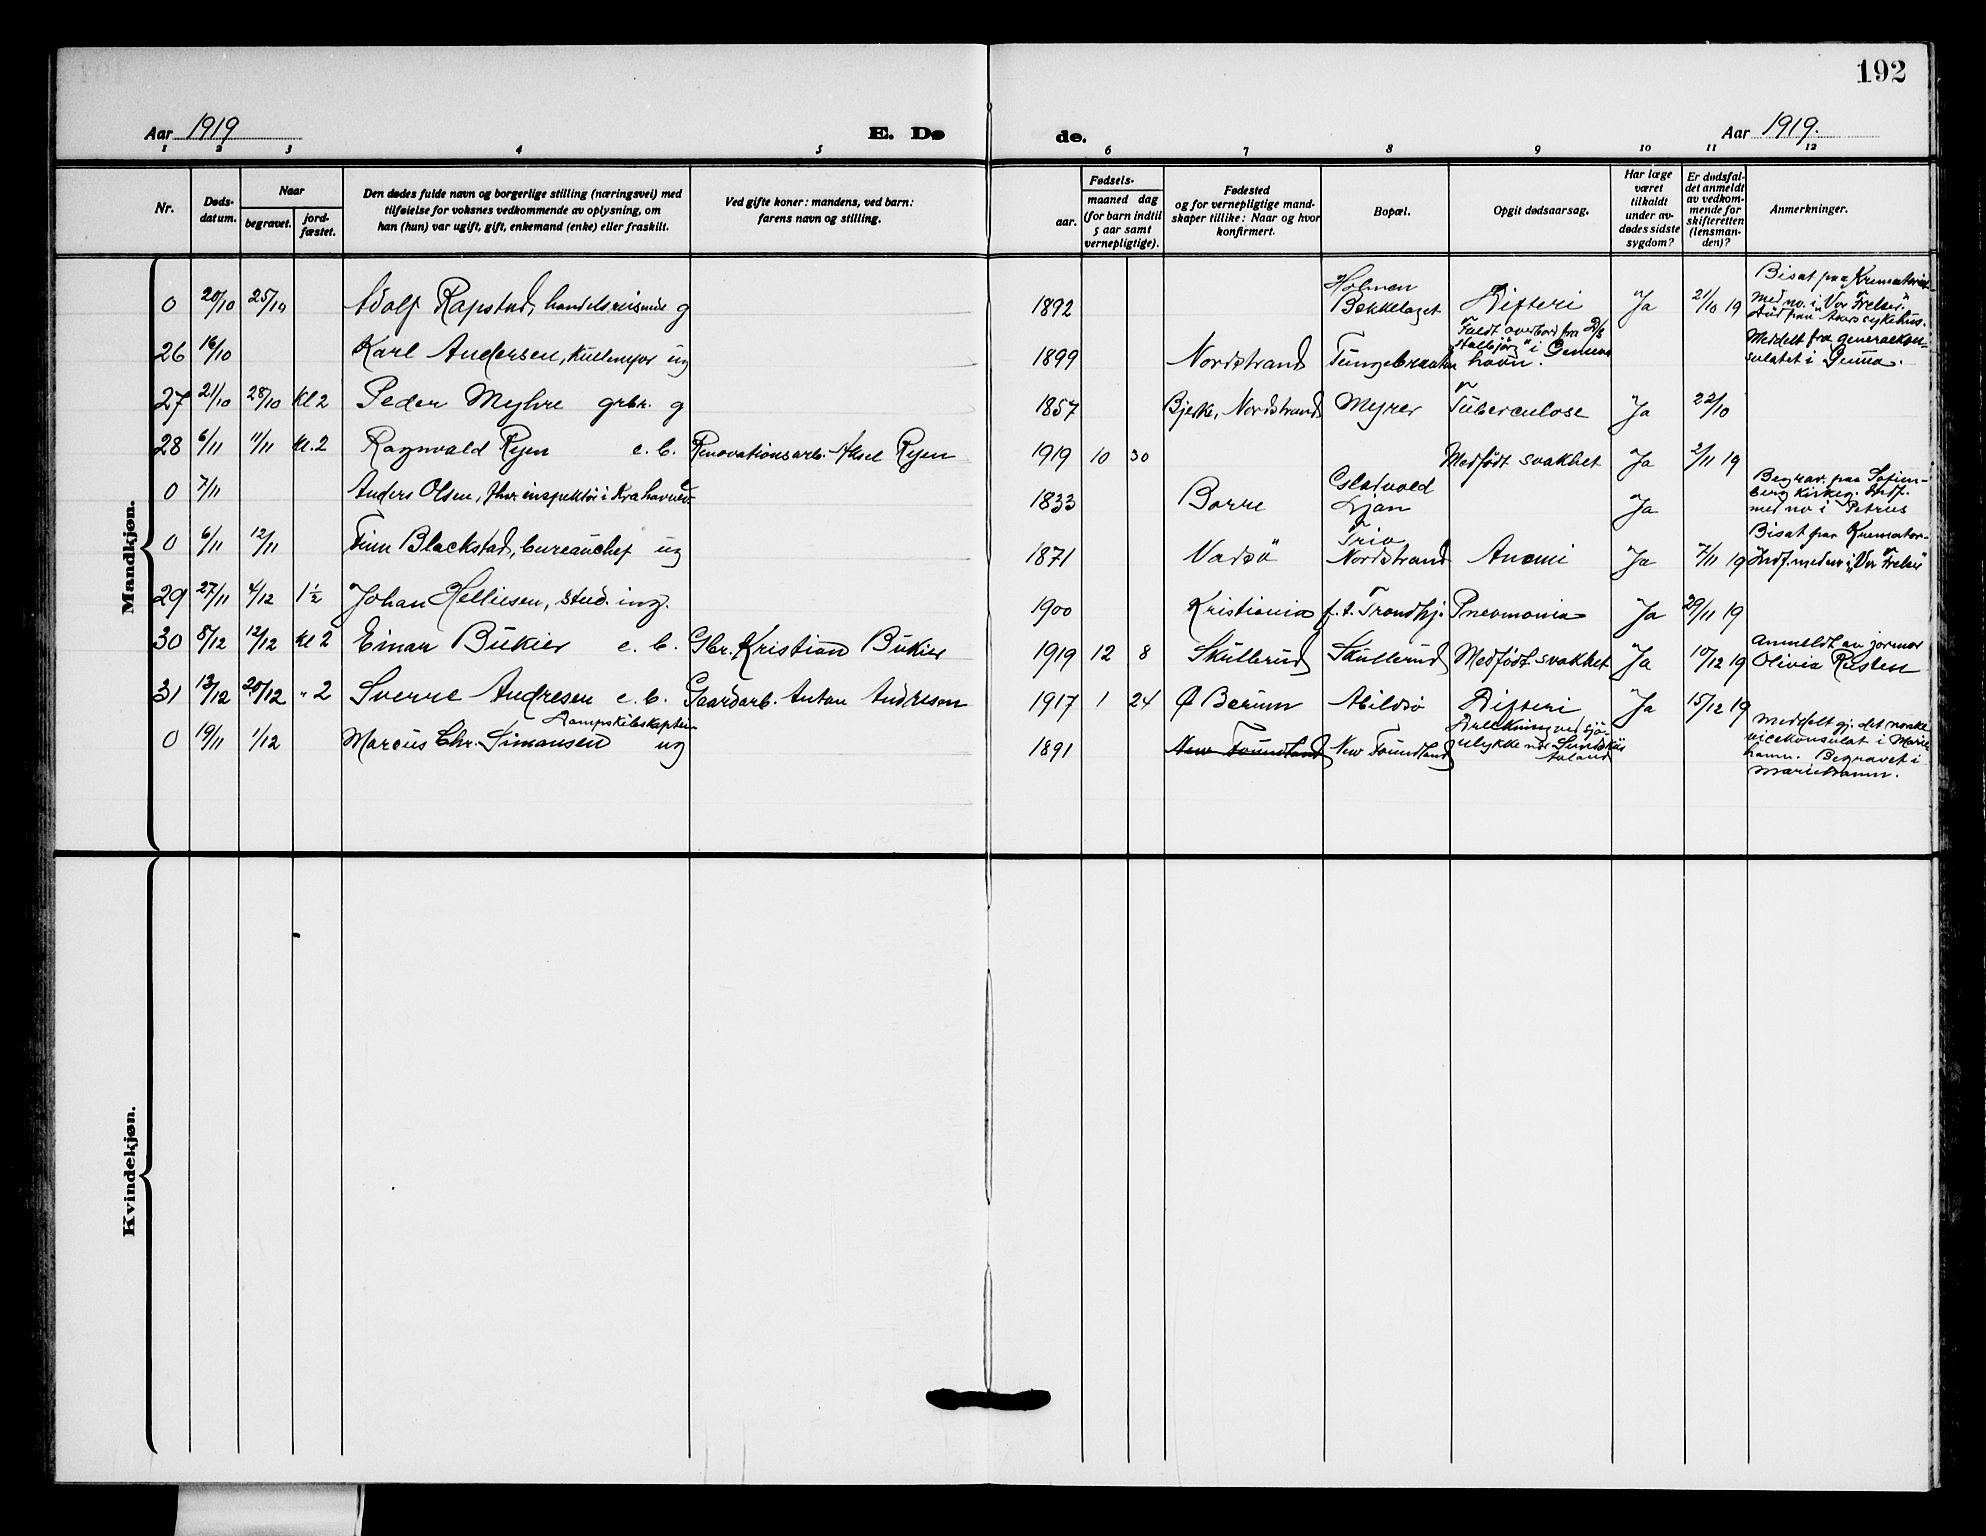 192
Aar 1919 E. Dø de. Aar 1919.
1 2 3 4 5 6 7 8 9 10 11 12
Nr.
Døds-
datum.
Naar
begravet.
jord-
fæstet.
Den dødes fulde navn og borgerlige stilling (næringsvei) med
tilføielse for voksnes vedkommende av oplysning, om
han (hun) var ugift, gift, enkemand (enke) eller fraskilt.
Ved gifte koner: mandens, ved barn:
farens navn og stilling.
Fødsels-
aar.
maaned dag
(for barn indtil
5 aar samt
vernepligtige).
Fødested
og for vernepligtige mand-
skaper tillike: Naar og hvor
konfirmert.
Bopæl.
Opgit dødsaarsag.
Har læge
været
tilkaldt
under av-
dødes sidste
sygdom?
Er dødsfal-
det anmeldt
av vedkom-
mende for
skifteretten
(lensman-
den)?
Anmerkninger.
Mandkjøn.
0 20/10 25/10 Adolf Rapstad, handelsreisende g 1892 Holmen Bekkelaget Difteri Ja 21/10 19 Bisat paa Krematoriet
Med no. i "Vor Frelser".
26 16/10 Karl Andersen, ug 1899 Nordstrand Faldt overbord fra D/S
i Genua havn. Meddelt fra generalkon-
sulatet i Genua.
27 21/10 28/10 Kl 2 Peder Myhre grbr. g 1857 Bjerke, Nordstrand Myrer Tuberculose Ja 22/10
28 6/11 11/11 kl. 2 Ragnvald Ryen e. b. Renovationsarb. Aksel Ryen 1919 10 30 Medfødt svakhet Ja 7/11 19
0 7/11 Anders Olsen, fhv. inspektör i Kra havnev. 1833 Borre Ljan Ja Begrav. paa Sofien-
berg kirkeg. Indf.
med no i Petrus
0 6/11 12/11 Finn Blackstad, bureauchef ug 1871 Vadsö Trio
Nordstrand Anemi Ja 7/11 19 Bisat paa Kremator-
Indf. med no i "Vor Frelser"
29 27/11 4/12 1½ Johan Helliesen, stud. ing. 1900 Kristiania f. t. Trondhj. Pneomonia Ja 29/11 19
30 8/12 12/12 kl 2 Einar Bukier e. b. Gbr. Kristian Bukier 1919 12 8 Skullerud Skullerud Medfödt svakhet Ja 10/12 19 Anmeldt av jormor
Olivia Rusten
31 13/12 20/12 " 2 Sverre Andresen e. b. Gaardarb. Anton Andresen 1917 1 24 Ö Bærum Abildsö Difteri Ja 15/12 19
0 19/11 1/12 Marcus Chr. Simonsen Dampskibskaptein ug 1891 New Foundland New Foundland Drukning ved sjö-
ulykke Aaland Meddelt gj. det norske
vicekonsulat i Marie-
hamn. Begravet i
Mariehamn.
Kvindekjøn.